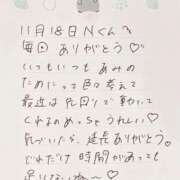 11月18日 Nくんへ
毎日 ありがとう♡
いつもいつも あみの
ためにって色々考えて
最近は 先回りで動いて
くれるの めっちゃうれしい♡
気づいたら、延長ありがとう。
どれだけ 時間があっても
足りないね〜♡